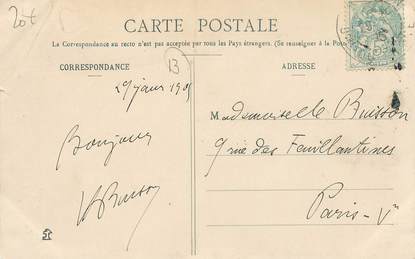 CARTE POSTALE
La Correspondance au recto n'est pas acceptée par tous les Pays étrangers. (Se renseigner à la Poste)
CORRESPONDANCE
ADRESSE
B
29 janv 1905
Bonjour
Buisson
Mademoiselle Buisson
9 rue des Feuillantines
Paris-Ve